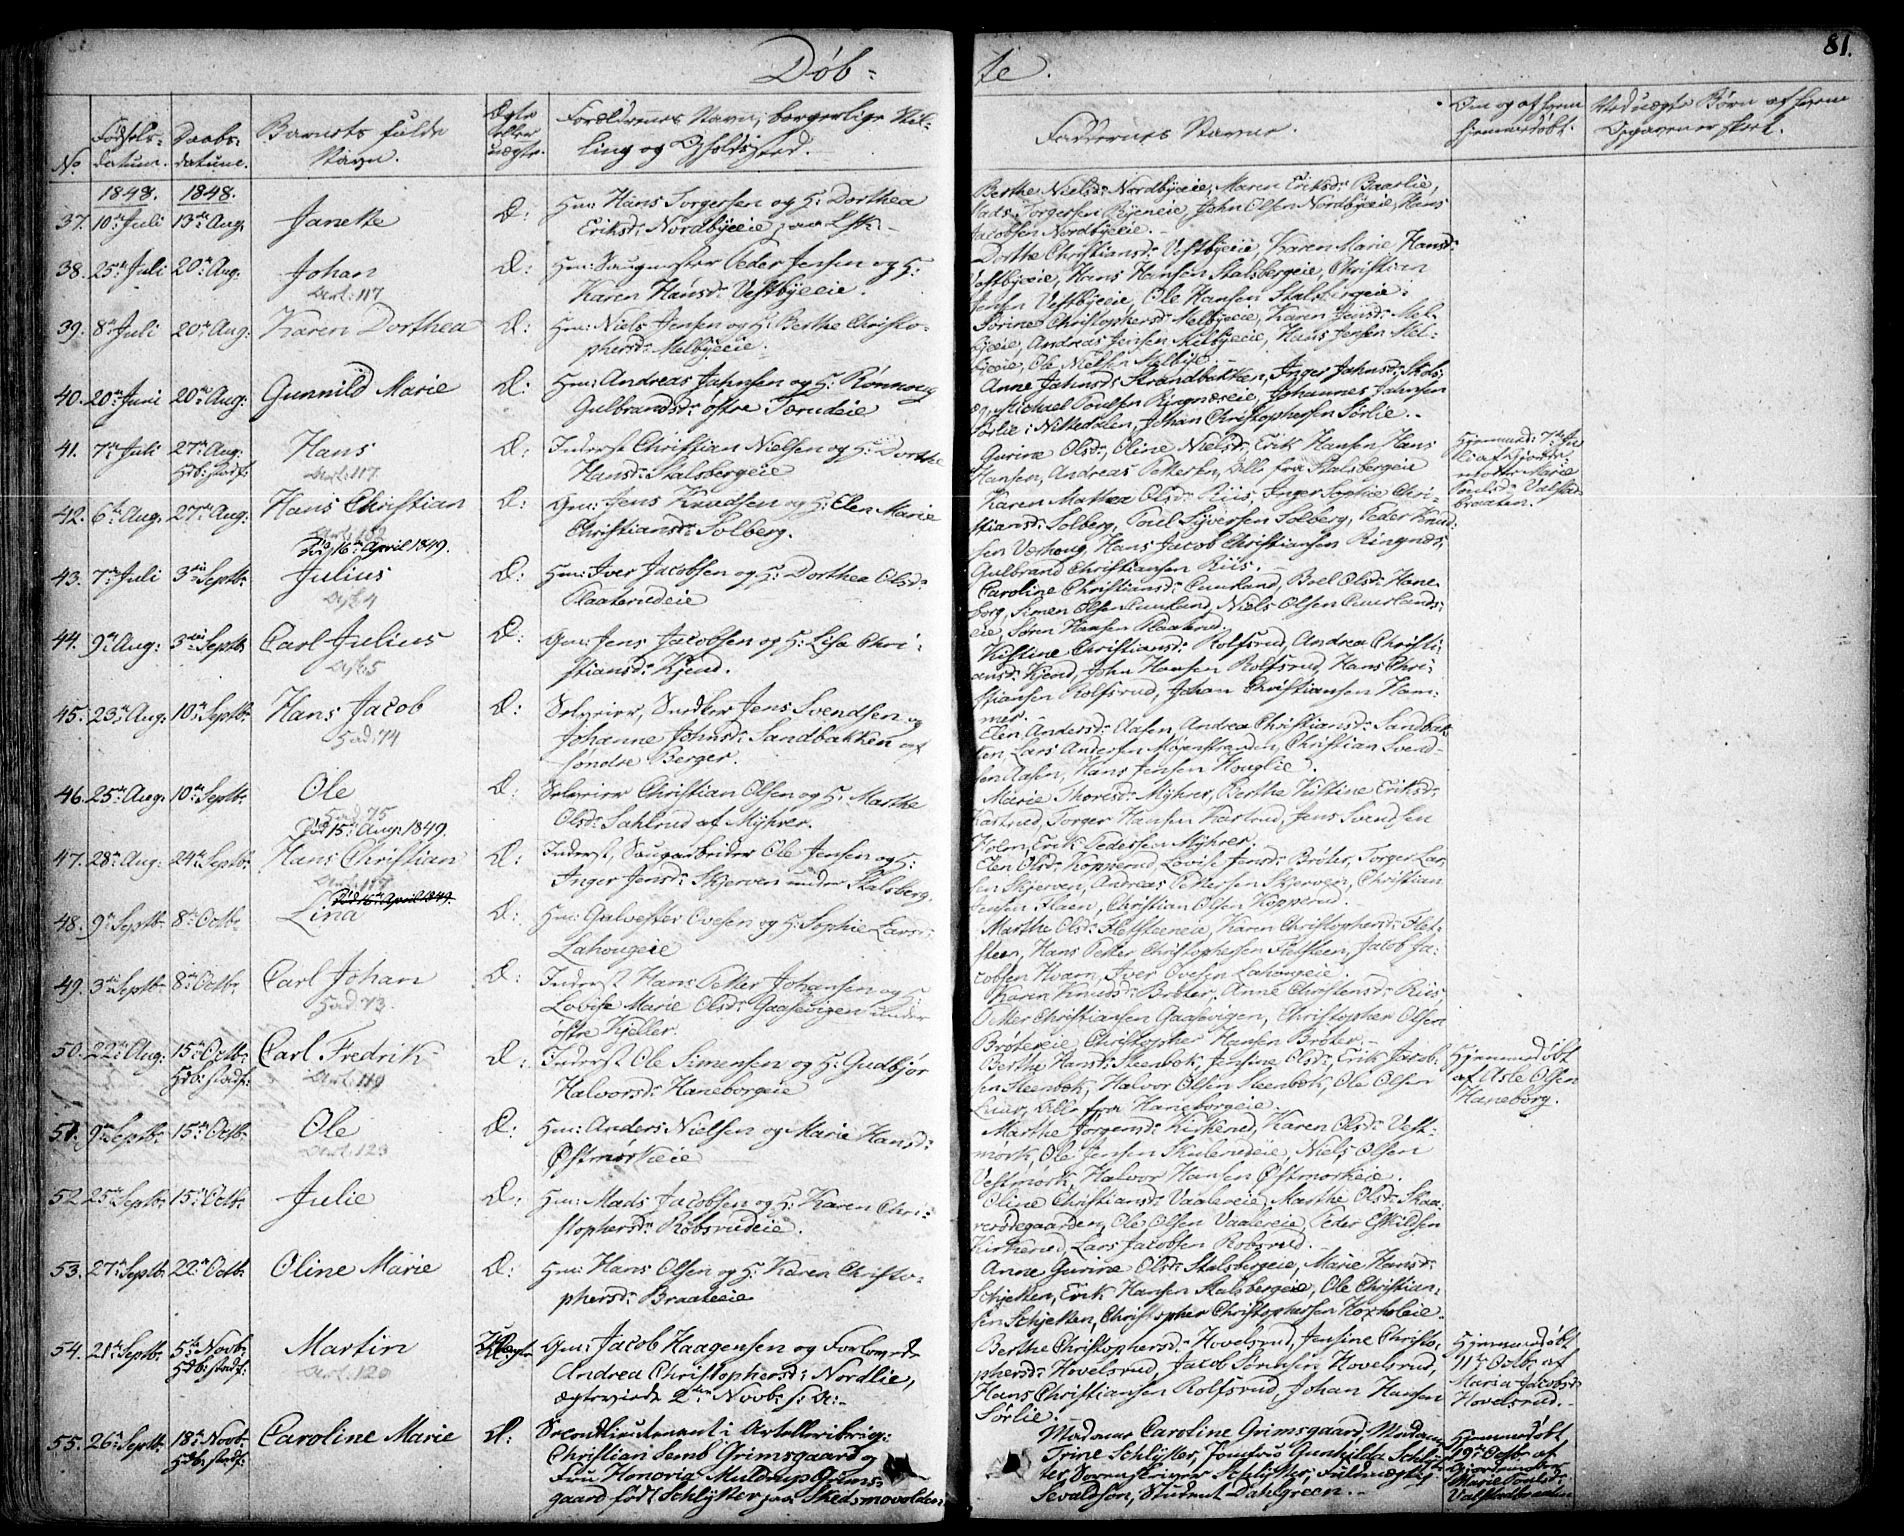 Døb-
te.
81.
No
Fødsels-
datum.
Daabs-
datum.
Barnets fulde
Navn.
Ægte
eller
uægte.
Forældrenes Navn, borgerlige Stil-
ling og Opholdssted.
Faddernes Navne.
Om og af hvem
hjemmedøbt.
Ved uægte Børn af hvem
Opgaven er skeet.
1848. 1848.
37. 10de Juli 13de Aug. Janette Æ: Hm: Hans Torgersen og H: Dorthea
Eriksd: Nordbyeeie
Berthe Nielsd: Nordbyeeie, Maren Eriksd: Baarlie,
Mads Torgersen Ryeneie, John Olsen Nordbyeeie, Hans
Jacobsen Nordbyeeie.
38. 25de Juli 20de Aug. Johan Æ: Hm: Saugmester Peder Jensen og H:
Karen Hansd: Vestbyeeie.
117
Dorthe Christiansd: Vestbyeeie, Karen Marie Hansd:
Vestbyeeie, Hans Hansen Stalsbergeie, Christian
Jensen Vestbyeeie, Ole Hansen Stalsbergeie.
39. 8de Juli 20de Aug. Karen Dorthea Æ: Hm: Niels Jensen og H: Berthe Christo-
phersd: Melbyeeie.
Dorine Christophersd: Melbyeeie, Karen Jensd: Mel-
byeeie, Andreas Jensen Melbyeeie, Hans Jensen Mel-
byeeie, Ole Nielsen Melbye.
40. 20de Juni 20de Aug: Gunnild Marie Æ: Hm: Andreas Jahnsen og H: Rønnoug
Gulbrandsd: østre Tærudeie
Anne Jahnsd: Strandbakken, Inger Jahnsd:
Michael Poulsen Ringnæseie, Johannes Jahnsen
Sørlie i Nittedalen, Johan Christophersen Sørlie.
41. 7de Juli 27de Aug: Hans Æ: Inderst Christian Nielsen og H: Dorthe
Hdb: stadf. 117 Hansd: Stalsbergeie
Gurine Olsd:, Oline Nielsd:, Erik Hansen, Hans
Hansen, Andreas Pettersen, Alle fra Stalsbergeie
Hjemmed: 7de Ju-
li af Gjorde-
moder Marie
Poulsd: Valstad-
braaten.
42. 6te Aug. 27de Aug: Hans Christian Æ: Gm: Jens Knudsen og H: Elen Marie
Christiansd: Solberg.
Død 16de April 1849.
Karen Mathea Olsd: Riis, Inger Sophie Chri-
stiansd: Solberg, Poul Syversen Solberg, Peder Knud-
sen Værhoug, Hans Jacob Christiansen Ringnæs,
Gulbrand Christiansen Riis.
43. 7de Juli 3die Septb: Julius Æ: Hm: Iver Jacobsen og H: Dorthea Olsd:
4 Plaaterudeie
Caroline Christiansd: Cuurland, Boel Olsd: Hane-
borg, Simen Olsen Cuurland, Niels Olsen Cuurlands-
eie, Søren Hansen Plaaterud.
44. 9de Aug: 3die Septb: Carl Julius Æ: Gm: Jens Jacobsen og H: Lisa Chri-
5 stiansd: Kjend.
Kistine Christiansd: Rolfsrud, Andrea Christi-
ansd: Kjend, John Hansen Rolfsrud, Hans Chri-
stiansen Rolfsrud, Johan Christiansen Ham-
mer.
45. 23de Aug: 10de Septb: Hans Jacob Æ: Selveier, Snedker Jens Svendsen og
74 Johanne Johnsd: Sandbakken af
søndre Berger.
Elen Andersd: Aasen, Andrea Christiansd: Sandbak-
ken, Lars Andersen Møjenstranden, Christian Svend-
sen Aasen, Hans Jensen Houglie.
46. 25de Aug. 10de Septb: Ole Æ: Selveier Christian Olsen og H: Marthe
75 Olsd: Sahlrud af Myhrer.
Død 15de Aug: 1849.
Marie Thoresd: Myhrer, Berthe Kistine Eriksd:
Kastrud, Torger Hansen Kastrud, Jens Svendsen
Holm, Erik Pedersen Myhrer.
47. 28de Aug: 24de Septb: Hans Christian Æ: Inderst, Saugarbeider Ole Jensen og H:
117 Inger Jensd: Skjerven under Stalsberg.
Død 16de April 1849.
Elen Olsd: Kopperud, Lovise Jensd: Brøter, Torger Lar-
sen Skjerven, Andreas Pettersen Skjerven, Christian
Jensen Flaen, Christian Olsen Kopperud.
48. 9de Septb: 8de Octb: Lina Æ: Hm: Galvester Ovesen og H: Sophie Larsd:
Lahougeie
Marthe Olsd: Fletsteeneie, Karen Christophersd: Flet-
steen, Hans Petter Christophersen Fletsteen, Jacob Ja-
cobsen Hvam, Iver Ovesen Lahougeie.
49. 3die Septb: 8de Octb: Carl Johan Æ: Inderst Hans Petter Johansen og H:
73. Lovise Marie Olsd: Gaasevigen under
østre Kjeller.
Karen Knudsd: Brøter, Anne Christensd: Riis,
Petter Christiansen Gaasevigen, Christopher Olsen
Brøtereie, Christopher Hansen Brøter.
50. 22de Aug: 15de Octb: Carl Fredrik Æ: Inderst Ole Simensen og H: Gudbjør
Hdb: stadf: 119 Halvorsd: Haneborgeie
Berthe Hansd: Steenbek, Jensine Olsd:, Erik Jacob-
sen Steenbek, Halvor Olsen Steenbek, Ole Olsen
Luur, Alle fra Haneborgeie.
Hjemmedøbt
af Asle Olsen
Haneborg.
51. 9de Septb: 15de Octb: Ole Æ: Hm: Anders Nielsen og Marie Hansd:
123 Østmorkeie
Marthe Jørgensd: Kirkerud, Karen Olsd: Vest-
mork, Ole Jensen Skulerudeie, Niels Olsen
Vestmork, Halvor Hansen Østmorkeie.
52. 25de Septb: 15de Octb: Julie Æ: Hm: Mads Jacobsen og H: Karen Chri-
stophersd: Robsrudeie.
Oline Christiansd: Vaalereie, Marthe Olsd: Skaa-
rerødegaarden, Ole Olsen Vaalereie, Peder Eskildsen
Kirkerud, Lars Jacobsen Robsrud.
53. 27de Septb: 22de Octb: Oline Marie Æ: Hm: Hans Olsen og H: Karen Christo-
phersd: Braateeie
Anne Gurine Olsd: Stalsbergeie, Marie Hansd:
Schjetten, Erik Hansen Stalsbergeie, Ole Christian-
sen Schjetten, Christopher Christophersen Hexeleie.
54. 21de Septb: 5te Novb: Martin Uægte Gm: Jacob Haagensen og Forlovede
Hdb: stadf: 120 Andrea Christophersd: Nordlie,
ægteviede 2den Novb: s: A:
Berthe Christophersd: Hovelsrud, Jensine Christo-
phersd: Hovelsrud, Jacob Sørensen Hovelsrud,
Hans Christiansen Rolfsrud, Johan Hansen
Sørlie.
Hjemmedøbt
11te Octb: af
Maria Jacobsd:
Hovelsrud.
55. 26de Septb: 18de Novb: Caroline Marie Æ: Secondlieutenant i Artilleribrig:
Hdb: stadf: Christian Semb Grimsgaard og
Fru Honoria Muldrup Grims-
gaard født Schlytter paa Skedsmovolden
Madame Caroline Grimsgaard, Madame
Trine Schlytter, Jomfru Gunhilda Schlyt-
ter, Sorenskriver Schlytter, Fuldmægtig
Sevaldson, Student Dahlgreen.
Hjemmedøbt,
19de Octb: af
Gjordemoder
Marie Poulsd:
Valstadbraaten